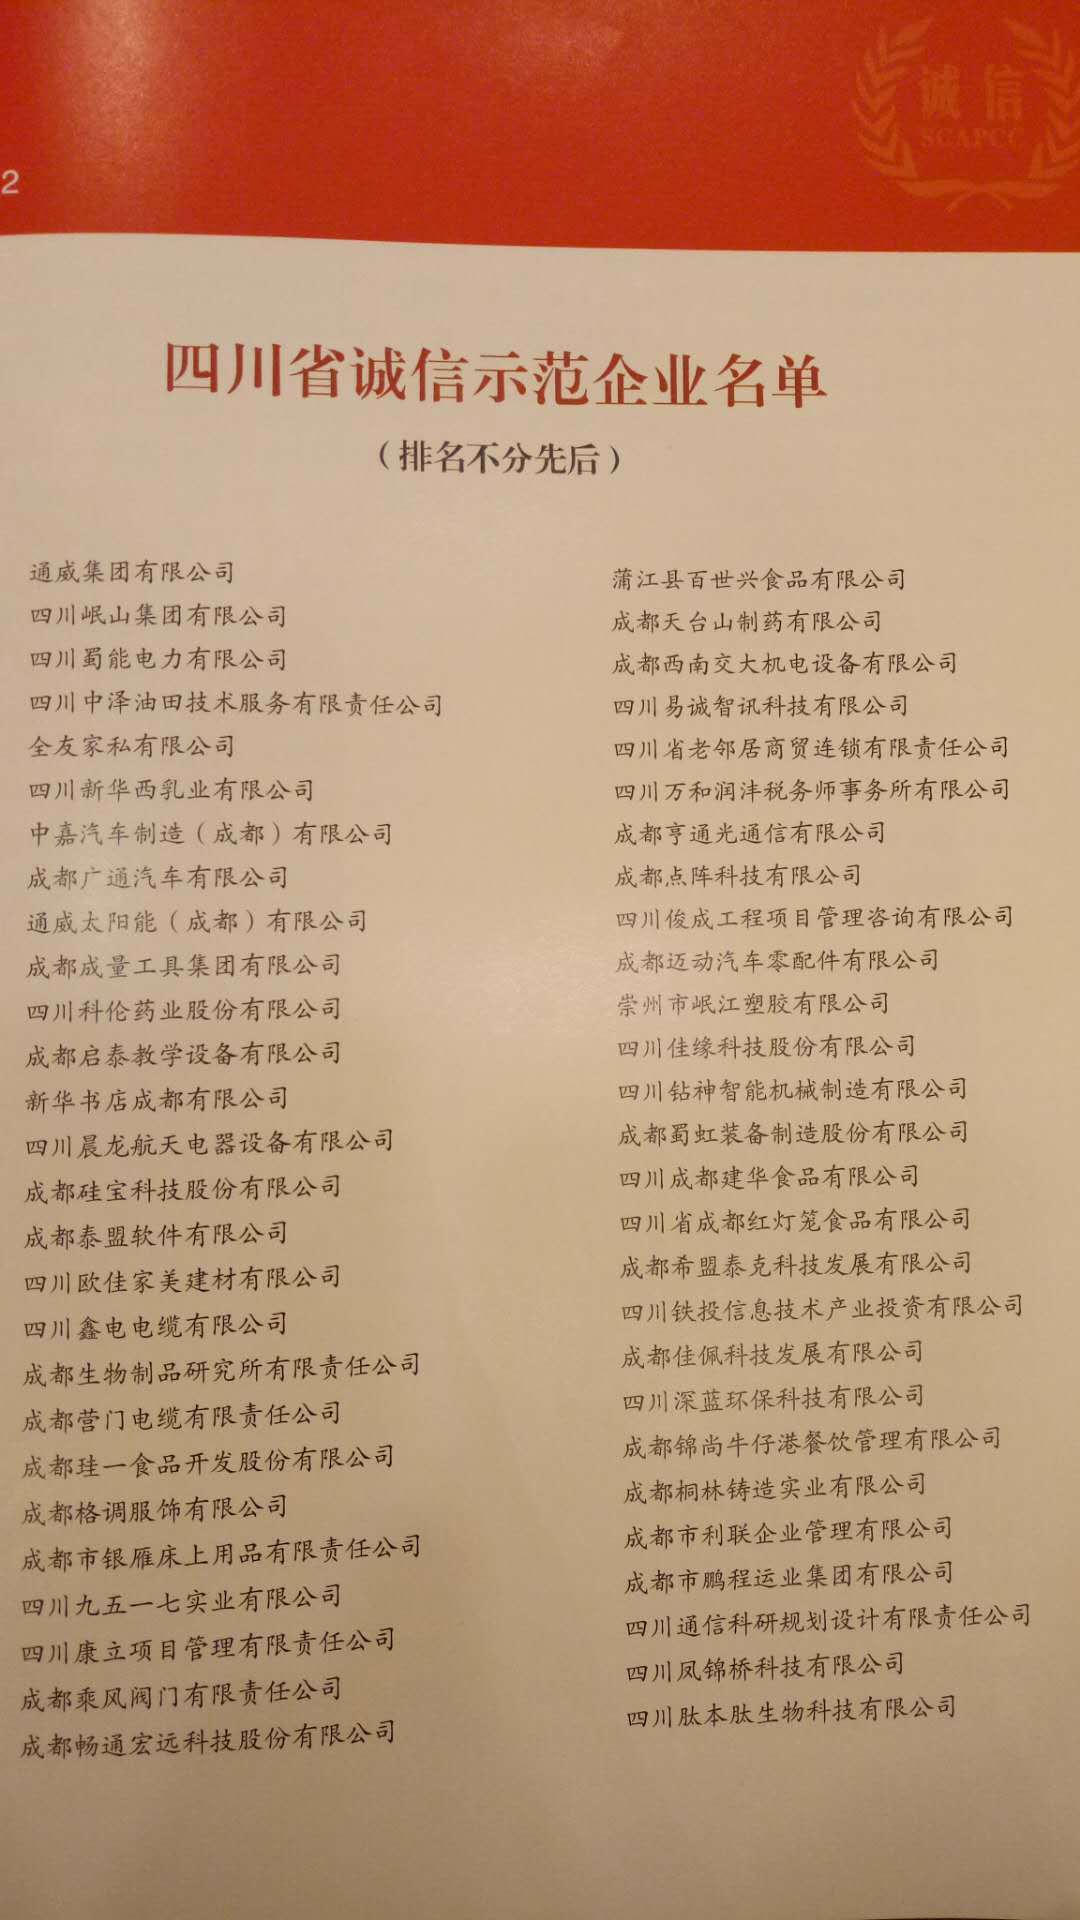 诚信
SCAPCC
2
四川省诚信示范企业名单
（排名不分先后）
通威集团有限公司
四川岷山集团有限公司
四川蜀能电力有限公司
四川中泽油田技术服务有限责任公司
全友家私有限公司
四川新华西乳业有限公司
中嘉汽车制造（成都）有限公司
成都广通汽车有限公司
通威太阳能（成都）有限公司
成都成量工具集团有限公司
四川科伦药业股份有限公司
成都启泰教学设备有限公司
新华书店成都有限公司
四川晨龙航天电器设备有限公司
成都硅宝科技股份有限公司
成都泰盟软件有限公司
四川欧佳家美建材有限公司
四川鑫电电缆有限公司
成都生物制品研究所有限责任公司
成都营门电缆有限责任公司
成都珪一食品开发股份有限公司
成都格调服饰有限公司
成都市银雁床上用品有限责任公司
四川九五一七实业有限公司
四川康立项目管理有限责任公司
成都乘风阀门有限责任公司
成都畅通宏远科技股份有限公司
蒲江县百世兴食品有限公司
成都天台山制药有限公司
成都西南交大机电设备有限公司
四川易诚智讯科技有限公司
四川省老邻居商贸连锁有限责任公司
四川万和润沣税务师事务所有限公司
成都亨通光通信有限公司
成都点阵科技有限公司
四川俊成工程项目管理咨询有限公司
成都迈动汽车零配件有限公司
崇州市岷江塑胶有限公司
四川佳缘科技股份有限公司
四川钻神智能机械制造有限公司
成都蜀虹装备制造股份有限公司
四川成都建华食品有限公司
四川省成都红灯笼食品有限公司
成都希盟泰克科技发展有限公司
四川铁投信息技术产业投资有限公司
成都佳佩科技发展有限公司
四川深蓝环保科技有限公司
成都锦尚牛仔港餐饮管理有限公司
成都桐林铸造实业有限公司
成都市利联企业管理有限公司
成都市鹏程运业集团有限公司
四川通信科研规划设计有限责任公司
四川凤锦桥科技有限公司
四川肽本肽生物科技有限公司